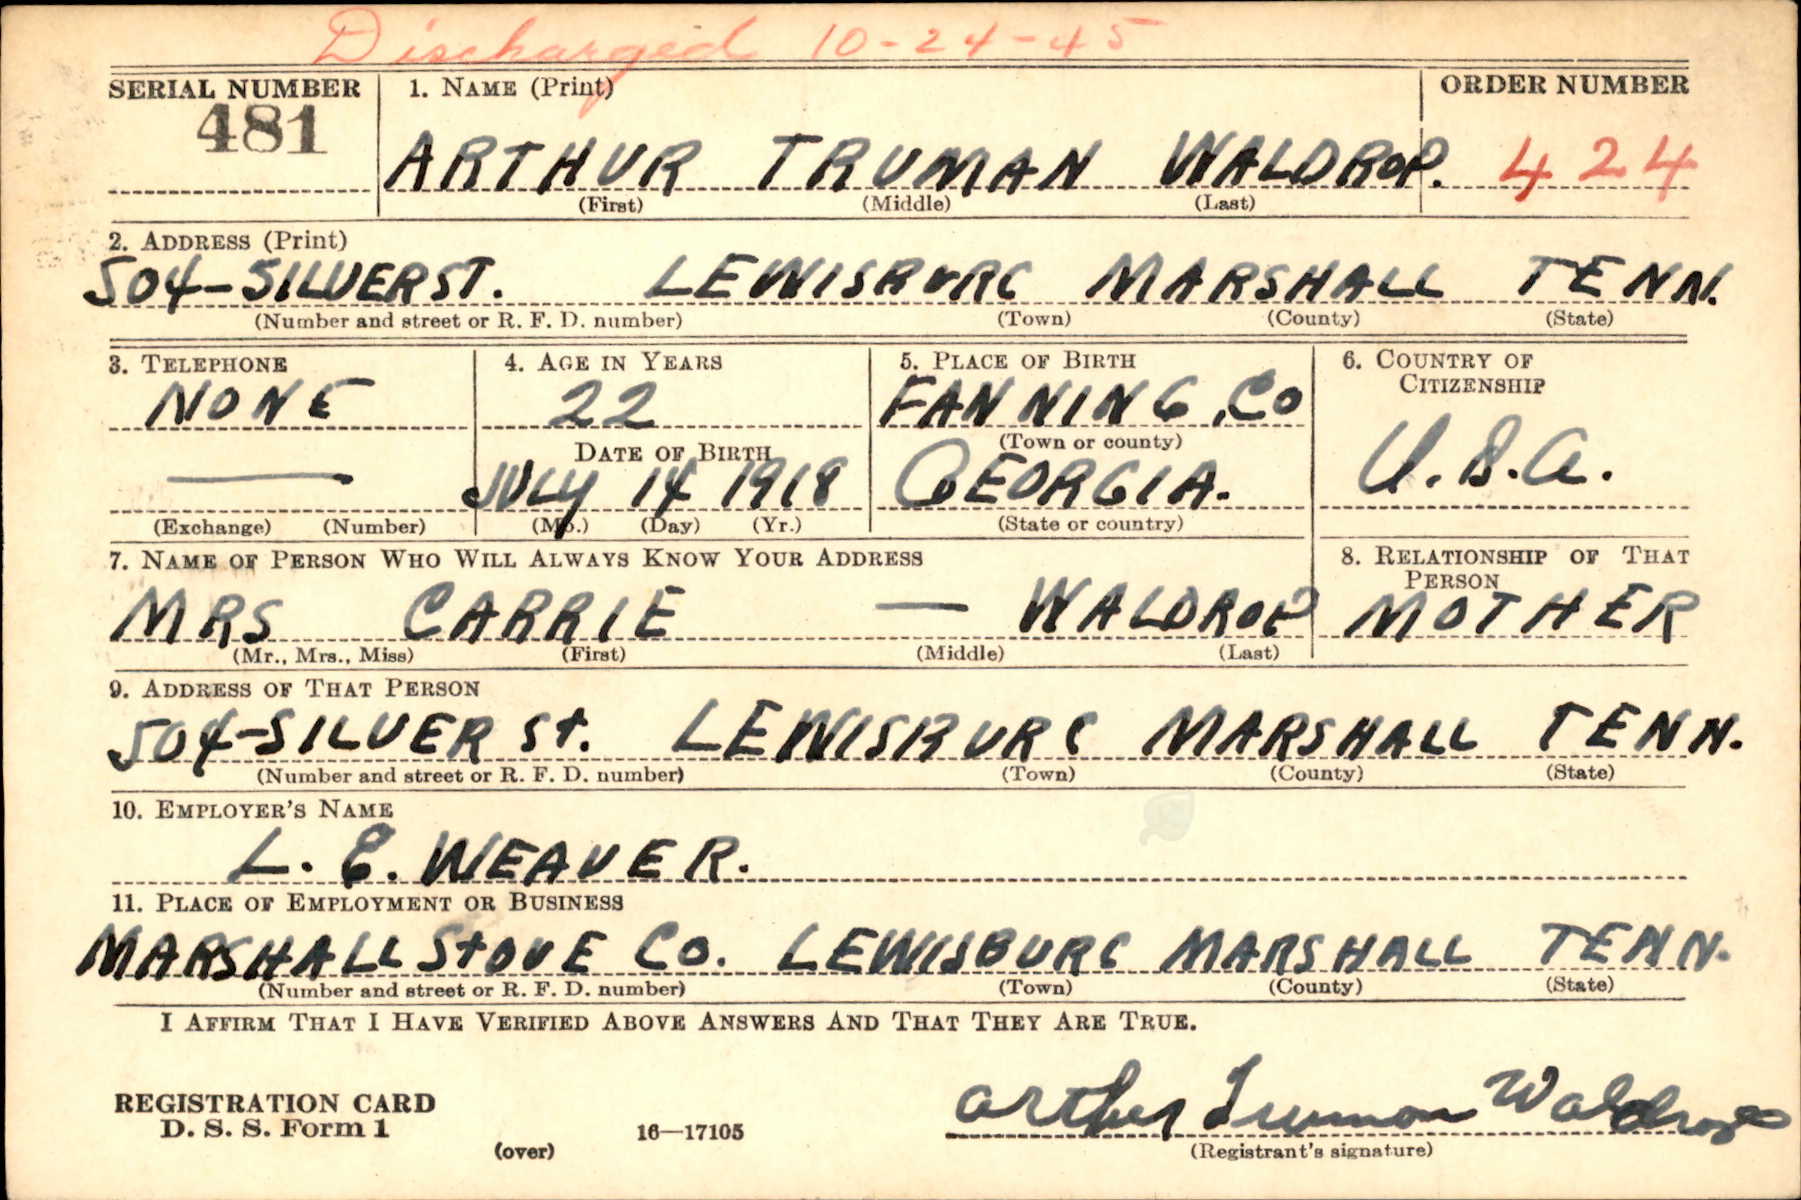 Discharged 10-24-45
SERIAL NUMBER 1. NAME (Print) ORDER NUMBER
481 ARTHUR TRUMAN WALDROP. 424
(First) (Middle) (Last)
2. ADDRESS (Print)
504-SILVER ST. LEWISBURG MARSHALL TENN.
(Number and street or R. F. D. number) (Town) (County) (State)
3. TELEPHONE 4. AGE IN YEARS 5. PLACE OF BIRTH 6. COUNTRY OF
CITIZENSHIP
NONE 22 FANNING, CO
DATE OF BIRTH (Town or county)
JULY 14 1918 GEORGIA. U.S.A.
(Exchange) (Number) (Mo.) (Day) (Yr.) (State or country)
7. NAME OF PERSON WHO WILL ALWAYS KNOW YOUR ADDRESS 8. RELATIONSHIP OF THAT
PERSON
MRS CARRIE — WALDROP MOTHER
(Mr., Mrs., Miss) (First) (Middle) (Last)
9. ADDRESS OF THAT PERSON
504-SILVER St. LEWISBURG MARSHALL TENN.
(Number and street or R. F. D. number) (Town) (County) (State)
10. EMPLOYER'S NAME
L. E. WEAVER.
11. PLACE OF EMPLOYMENT OR BUSINESS
MARSHALL StOVE CO. LEWISBURG MARSHALL TENN.
(Number and street or R. F. D. number) (Town) (County) (State)
I AFFIRM THAT I HAVE VERIFIED ABOVE ANSWERS AND THAT THEY ARE TRUE.
REGISTRATION CARD
D. S. S. Form 1 (over) 16—17105 Arther Truman Waldrop
(Registrant's signature)